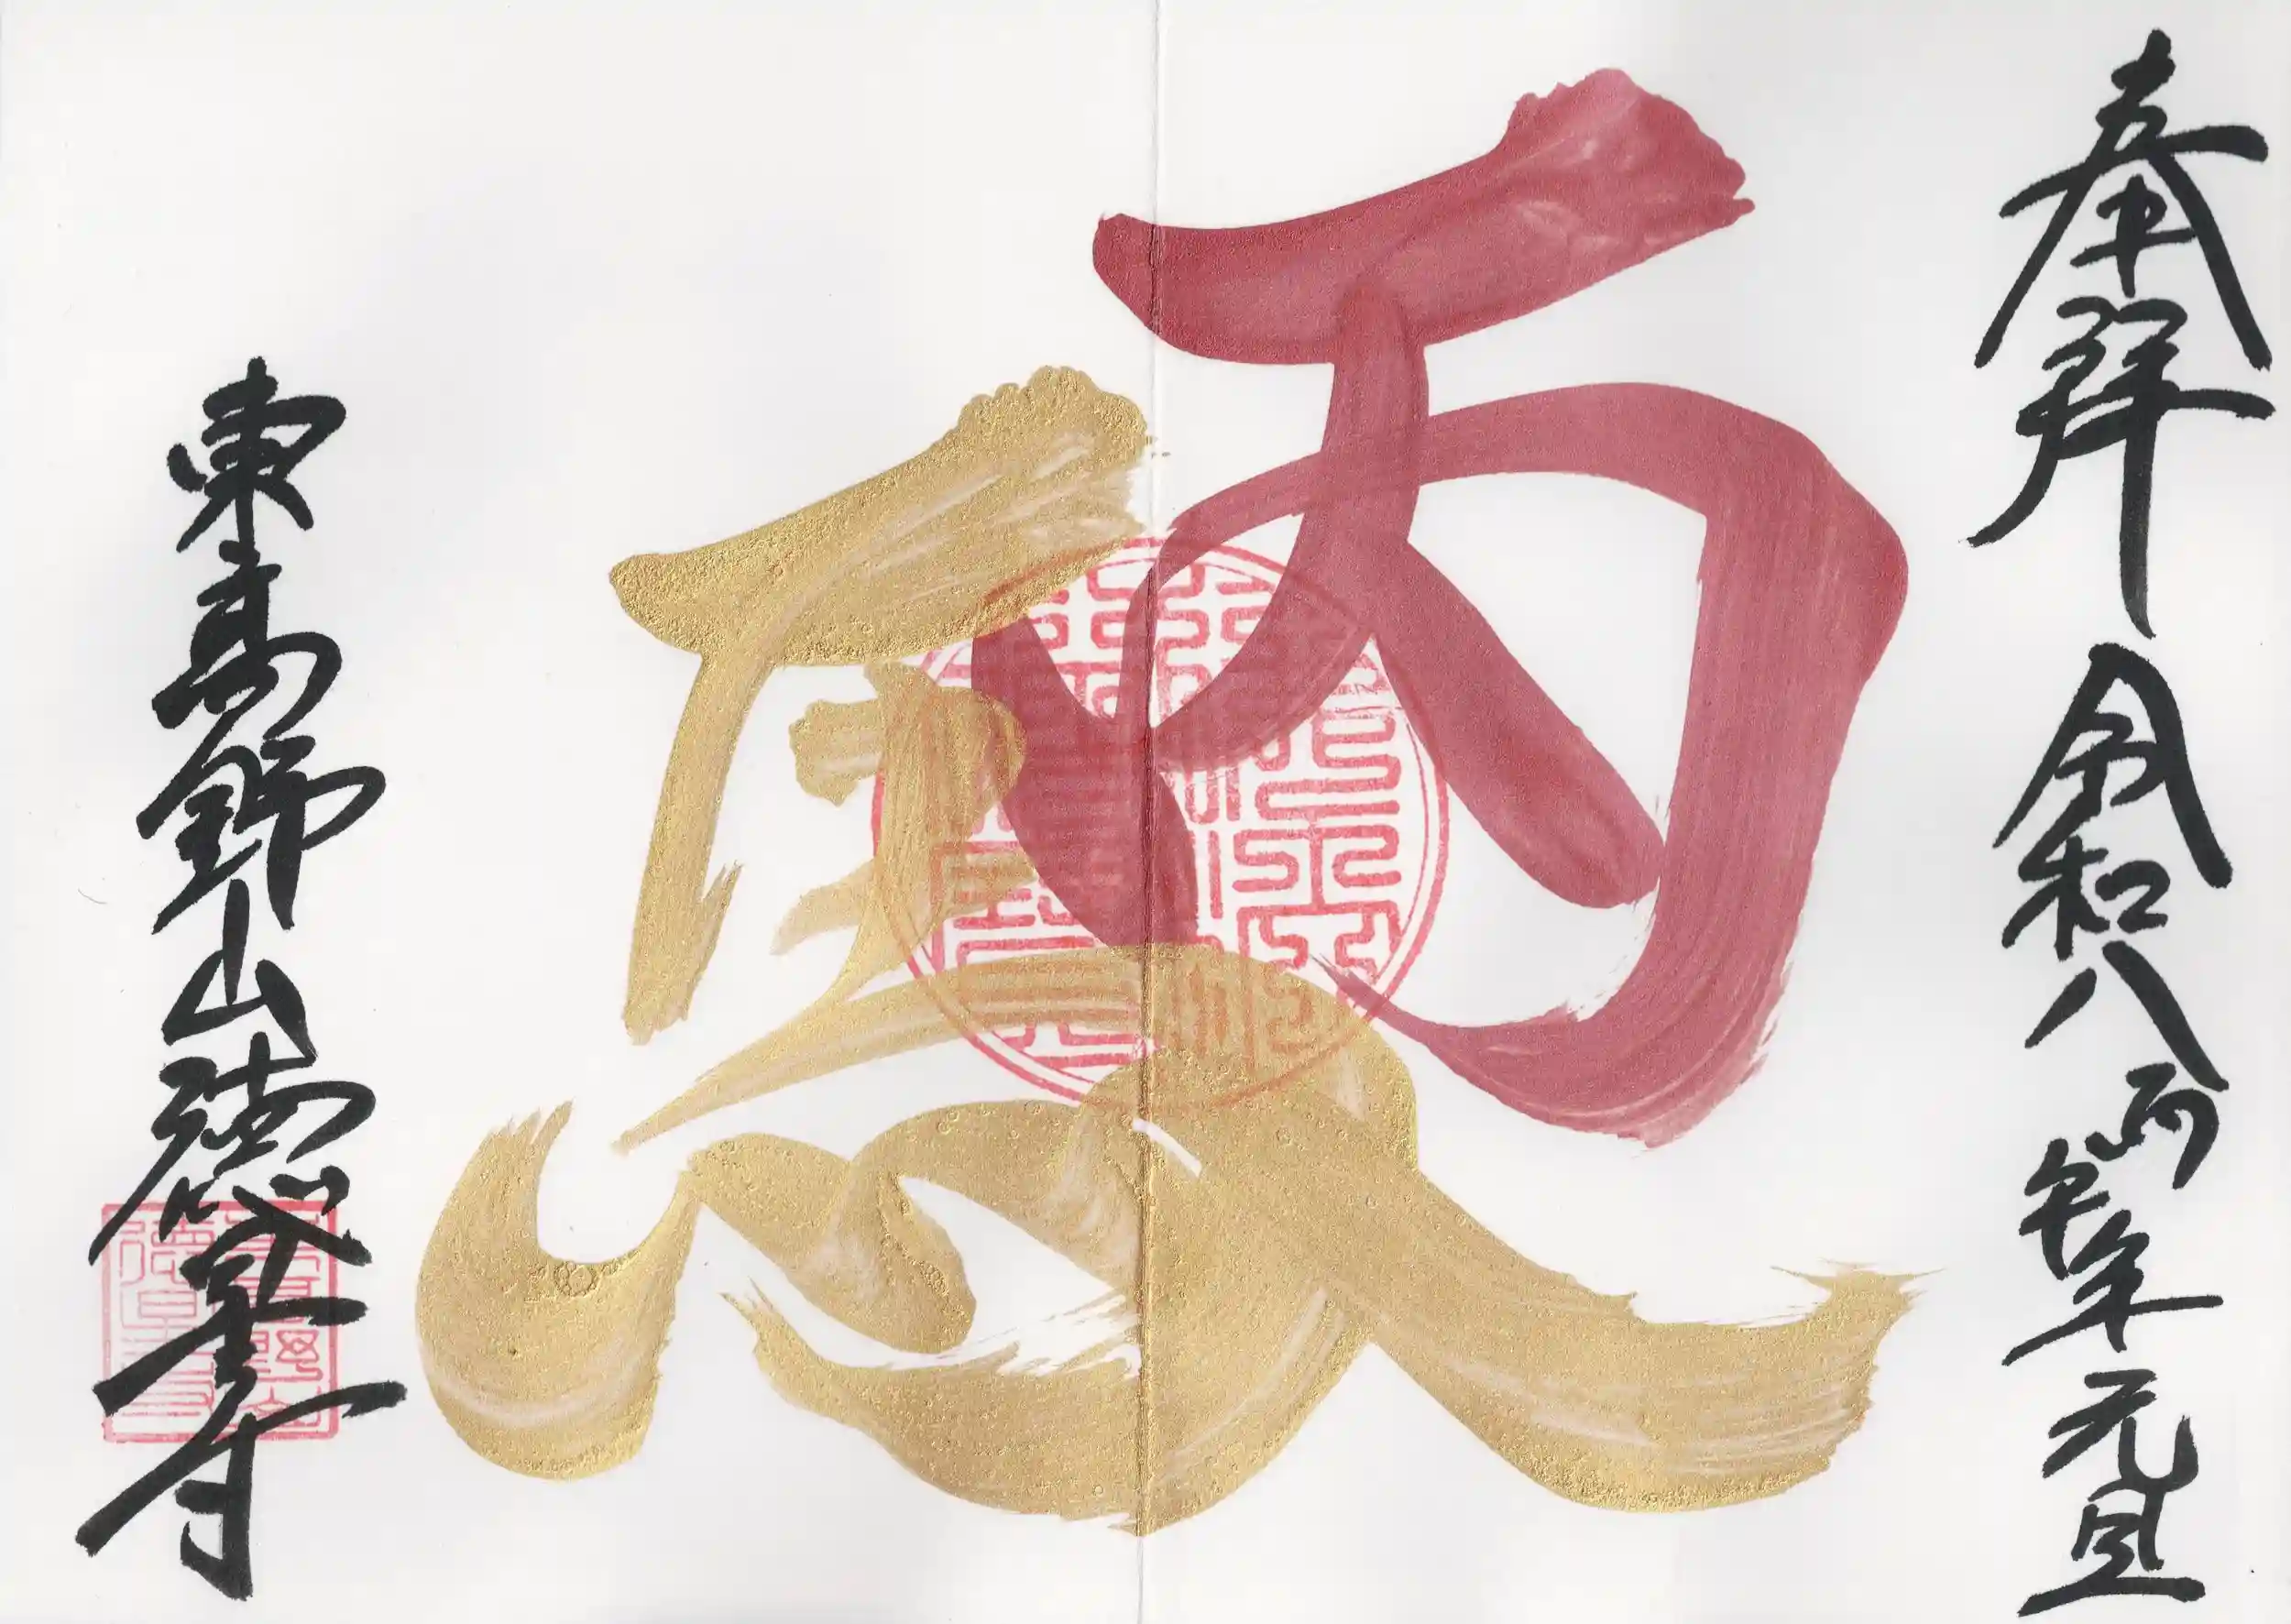 奉拝 令和八丙午年元旦
丙
東高野山德星寺